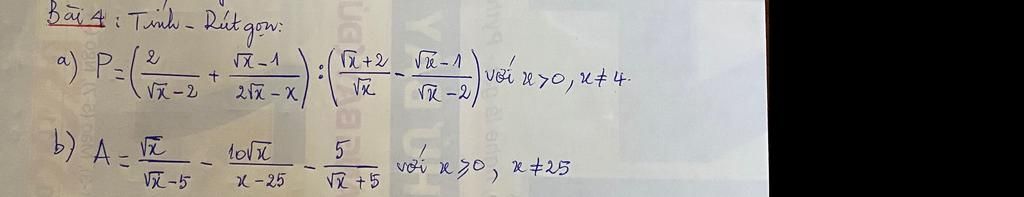 Bài 4 : Tính - Rút gọn:
a) P = (2/(√x - 2) + (√x - 1)/(2√x - x)) : ((√x + 2)/√x - (√x - 1)/(√x - 2)) với x > 0, x ≠ 4.
b) A = √x/(√x - 5) - 10√x/(x - 25) - 5/(√x + 5) với x ≥ 0, x ≠ 25